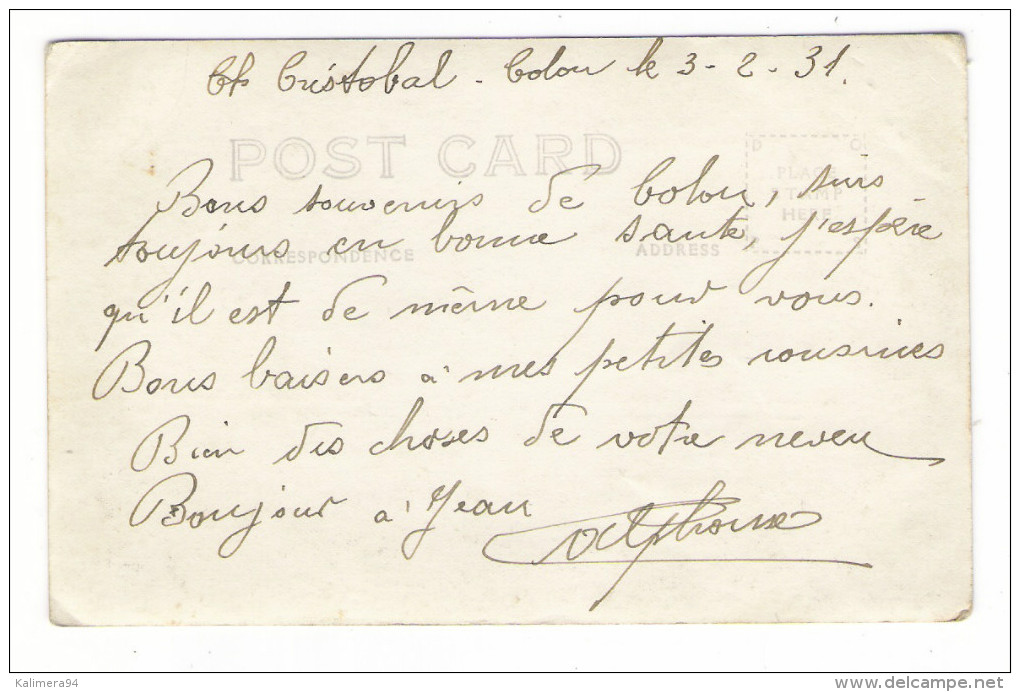 Cristobal - Colon le 3-2-31.
POST CARD
PLACE
STAMP
HERE
Bons souvenirs de Colon, suis
toujours en bonne santé, j'espère
CORRESPONDENCE ADDRESS
qu'il est de même pour vous.
Bons baisers à mes petites cousines
Bien des choses de votre neveu
Bonjour à Jean Alphonse
Kalimera94
delcampe.net